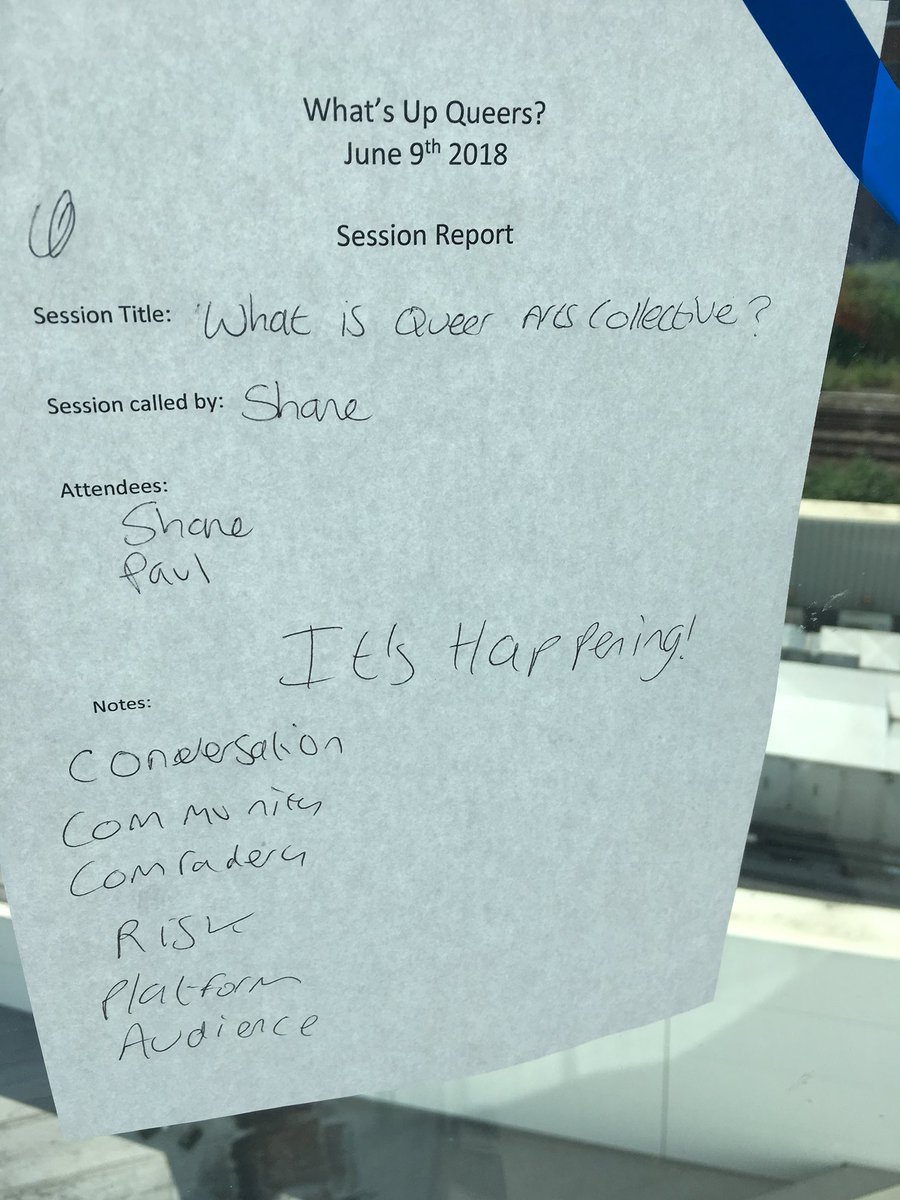 What's Up Queers?
June 9th 2018
Session Report
Session Title: 'What is Queer Arts Collective?
Session called by: Shane
Attendees:
Shane
Paul
It's Happening!
Notes:
Conversation
Community
Comradery
Risk
Platform
Audience